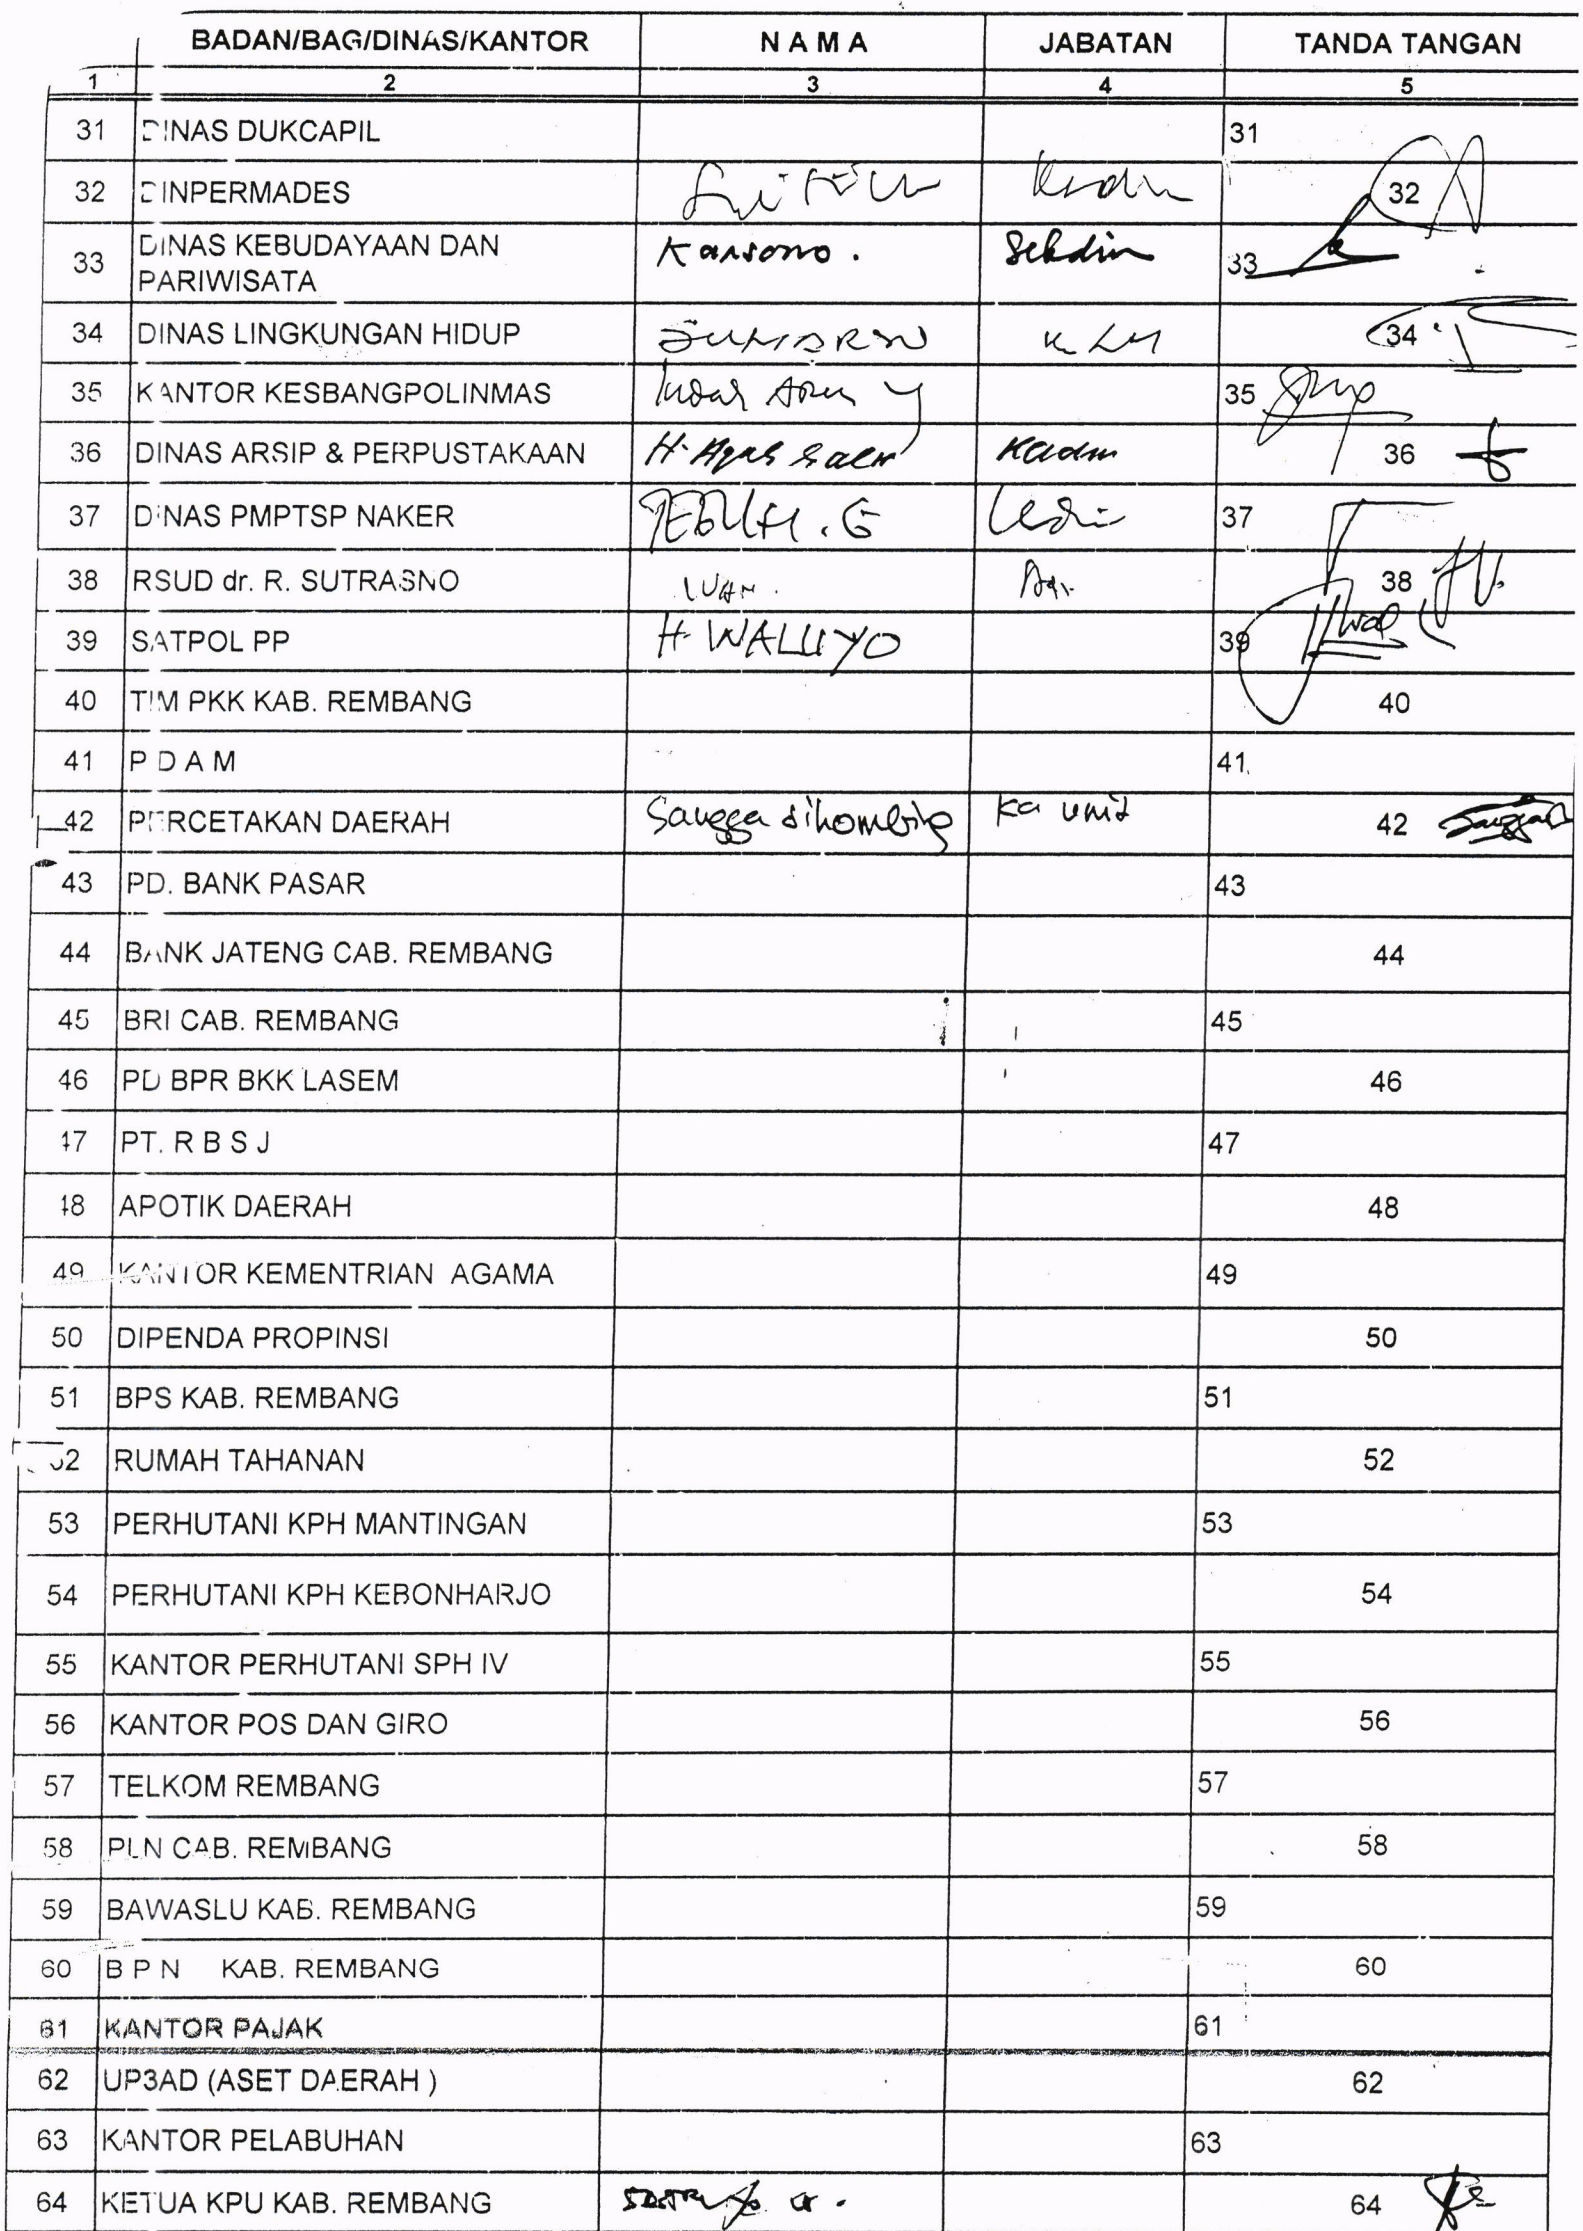 BADAN/BAG/DINAS/KANTOR N A M A JABATAN TANDA TANGAN
1 2 3 4 5
31 DINAS DUKCAPIL 31
32 DINPERMADES 32
33 DINAS KEBUDAYAAN DAN
PARIWISATA Karsono. Sekdin 33
34 DINAS LINGKUNGAN HIDUP 34
35 KANTOR KESBANGPOLINMAS 35
36 DINAS ARSIP & PERPUSTAKAAN H. Kadin 36
37 DINAS PMPTSP NAKER 37
38 RSUD dr. R. SUTRASNO 38
39 SATPOL PP H. WALUYO 39
40 TIM PKK KAB. REMBANG 40
41 P D A M 41
42 PERCETAKAN DAERAH Sangga sihombing Ka unit 42
43 PD. BANK PASAR 43
44 BANK JATENG CAB. REMBANG 44
45 BRI CAB. REMBANG 45
46 PD BPR BKK LASEM 46
47 PT. R B S J 47
48 APOTIK DAERAH 48
49 KANTOR KEMENTRIAN AGAMA 49
50 DIPENDA PROPINSI 50
51 BPS KAB. REMBANG 51
52 RUMAH TAHANAN 52
53 PERHUTANI KPH MANTINGAN 53
54 PERHUTANI KPH KEBONHARJO 54
55 KANTOR PERHUTANI SPH IV 55
56 KANTOR POS DAN GIRO 56
57 TELKOM REMBANG 57
58 PLN CAB. REMBANG 58
59 BAWASLU KAB. REMBANG 59
60 B P N KAB. REMBANG 60
61 KANTOR PAJAK 61
62 UP3AD (ASET DAERAH ) 62
63 KANTOR PELABUHAN 63
64 KETUA KPU KAB. REMBANG 64